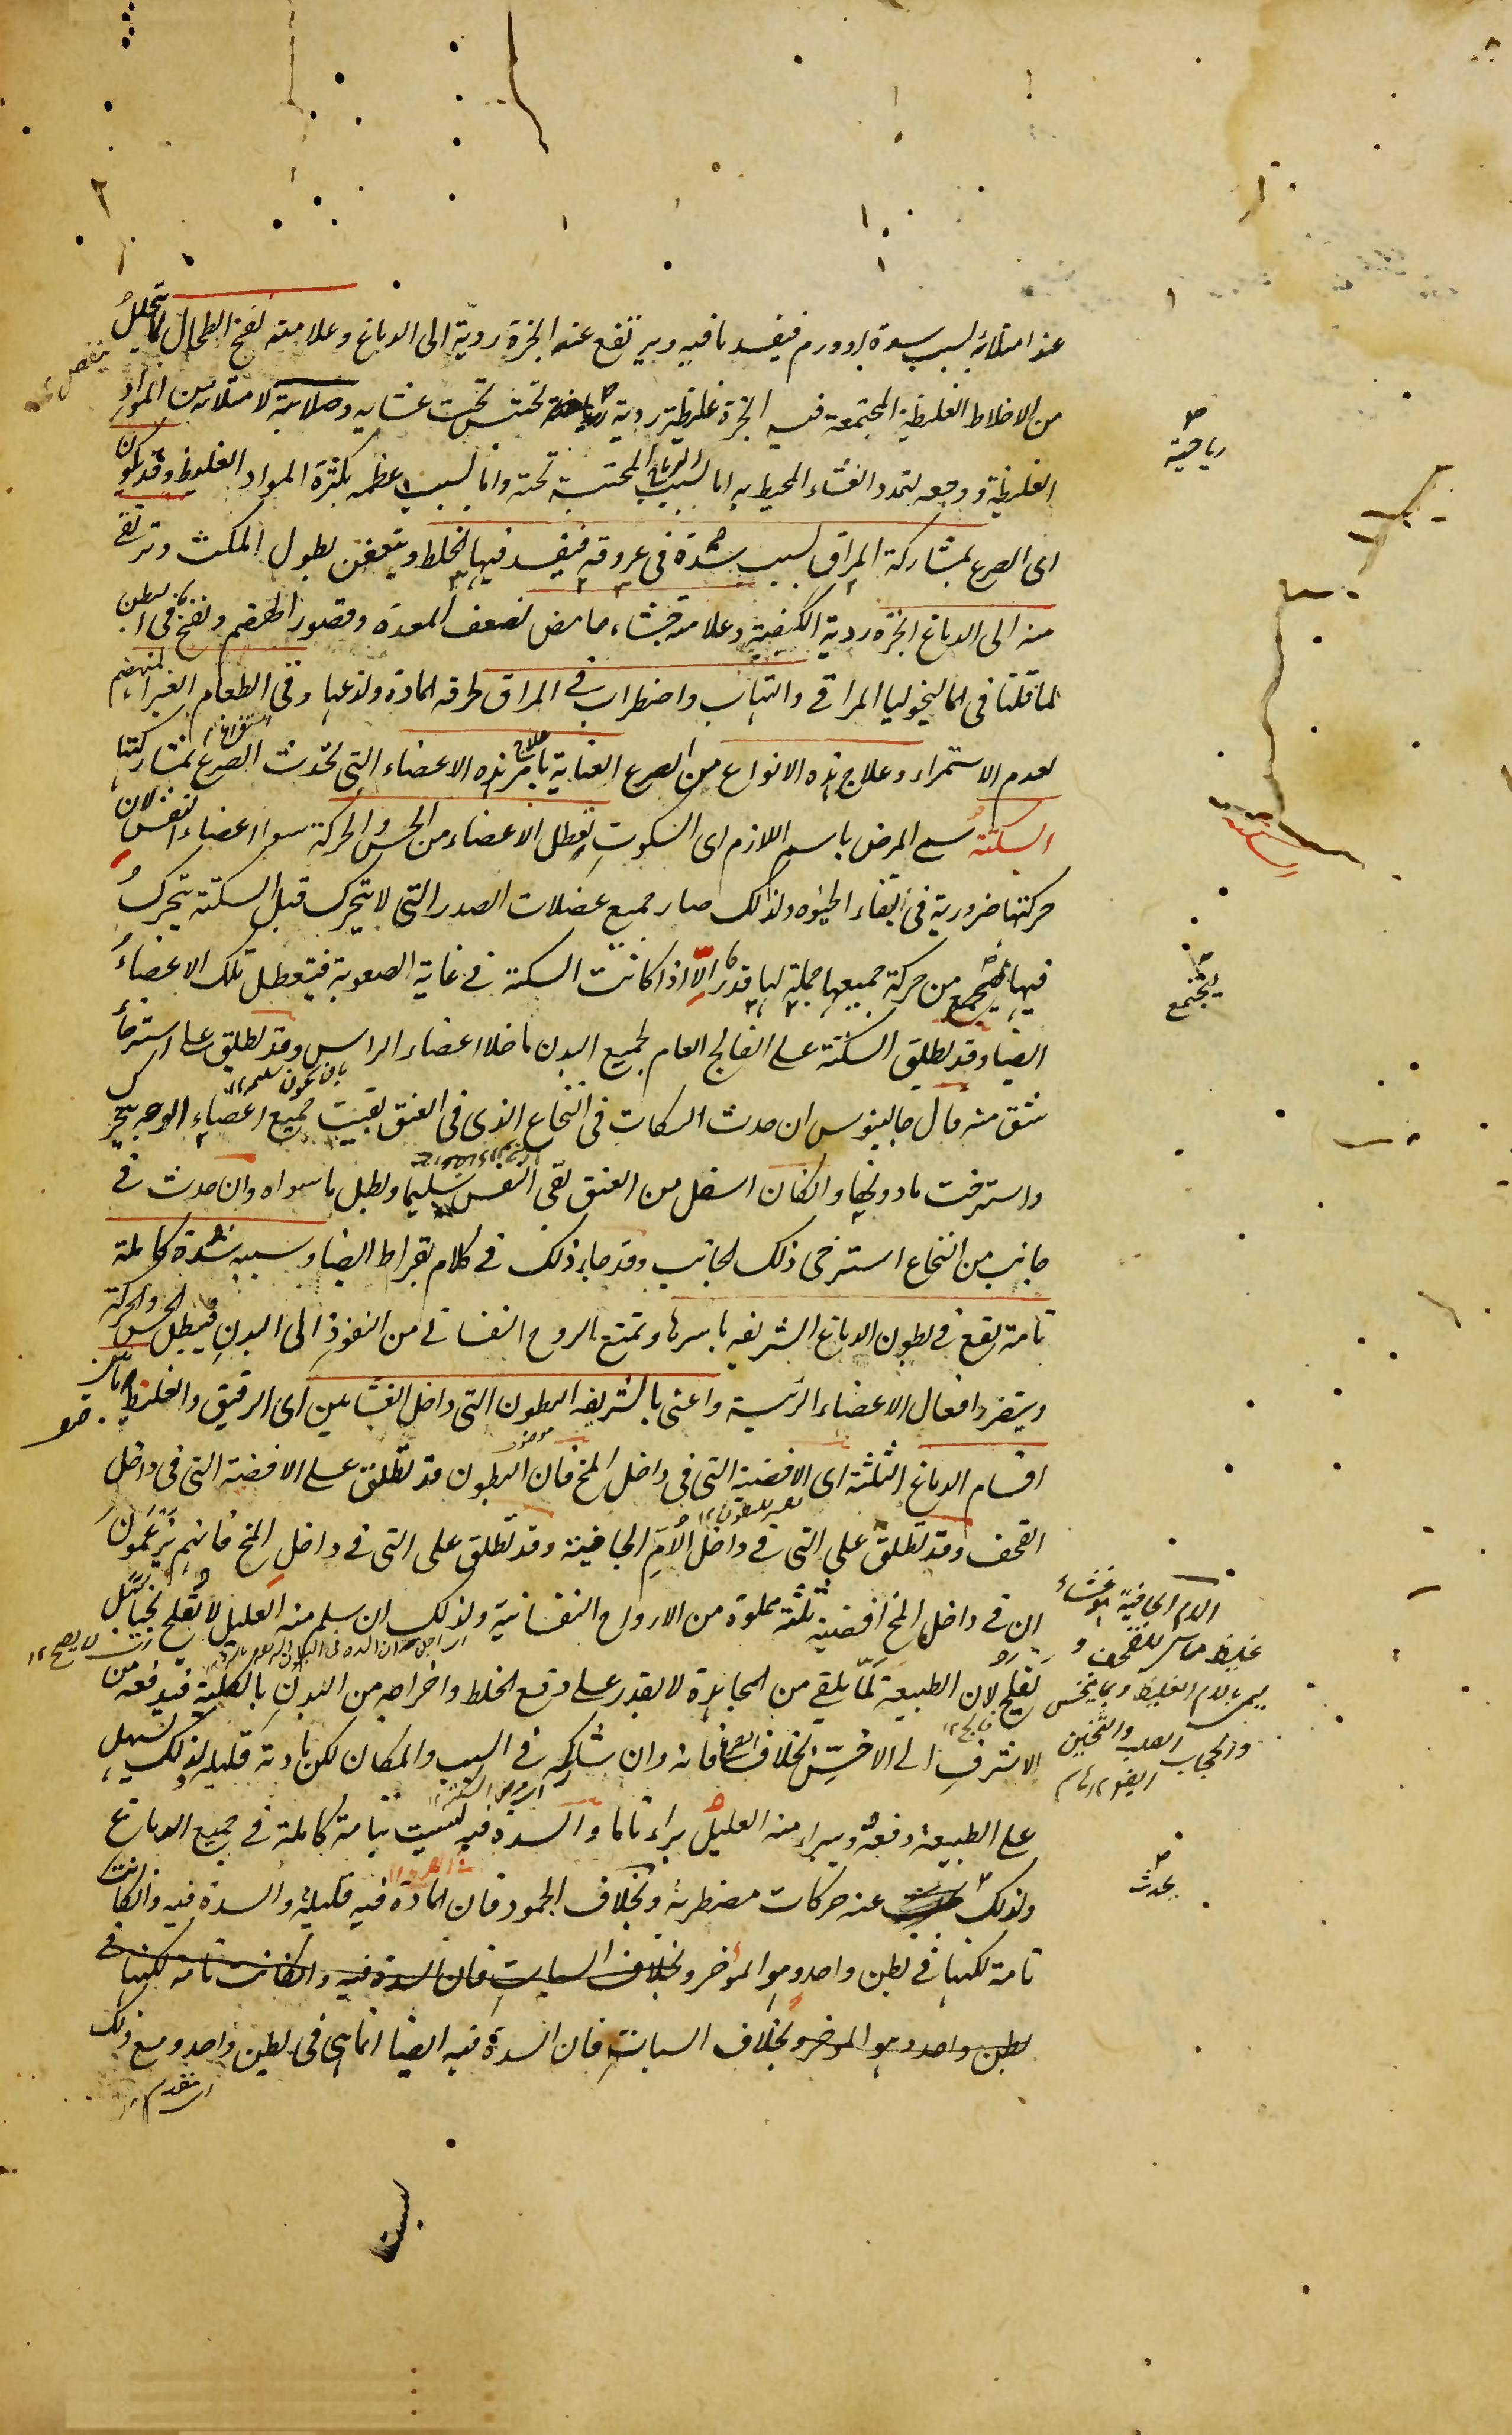 عند امتلائه بسبب سدة او ورم فيفسد ما فيه ويرتفع عنه ابخرة رديّة الى الدماغ وعلامته نفخ الطحال لما يتحلل
من الاخلاط الغليظة المجتمعة فيه ابخرة غليظة ردية رياحية تحتبس تحت غشايه وصلابته لامتلائه من المواد
الغليظة ووجعه لتمدد الغشاء المحيط به اما بسبب الرياح المحتبسة تحته واما بسبب عظمه بكثرة المواد الغليظ وقد يكون
اى الصرع بمشاركة المراق بسبب سدة فى عروقه فيفسد فيها الخلط ويتعفن بطول المكث وترتقى
منه الى الدماغ ابخرة ردية الكيفية وعلامته جشاء حامض لضعف المعدة وقصور الهضم ونفخ فى البطن
لما قلنا فى الماليخوليا المراقى والتهاب واضطراب فى المراق لحرقة المادة ولذعها وقى الطعام الغير المنهضم
لعدم الاستمراء وعلاج هذه الانواع من الصرع العناية بامر هذه الاعضاء التى تحدث الصرع بمشاركتها
السكتة سمى المرض باسم اللازم اى السكوت تعطل الاعضاء من الحس والحركة سوا اعضاء التنفس لان
حركتها ضرورية فى ابقاء الحيوة ولذلك صار جميع عضلات الصدر التى لا تتحرك قبل السكتة يتحرك
فيها ليجتمع من حركة جميعها جملة لها قدر الّا اذا كانت السكتة فى غاية الصعوبة فيتعطل تلك الاعضاء
ايضا وقد تطلق السكتة على الفالج العام لجميع البدن ما خلا اعضاء الراس وقد تطلق على استرخاء
شق منه قال جالينوس ان حدث السكات فى النخاع الذى فى العنق بقيت جميع اعضاء الوجه يتحرك
واسترخت ما دونها وان كان اسفل من العنق بقى النفس سليما وبطل ما سواه وان حدث فى
جانب من النخاع استرخى ذلك الجانب وقد جاء ذلك فى كلام بقراط ايضا وسببه سدة كاملة
تامة تقع فى بطون الدماغ الشريفه باسرها وتمنع الروح النفسانى من النفوذ الى البدن فيبطل الحس والحركة
ويتضرر افعال الاعضاء الرئيسة واعنى بالشريفه البطون التى داخل الغشائين اى الرقيق والغليظ
اقسام الدماغ الثلثة اى الافضية التى فى داخل المخ فان البطون قد تطلق على الافضية التى فى داخل
القحف وقد تطلق على التى فى داخل الام الجافية وقد تطلق على التى فى داخل المخ فانهم يزعمون
ان فى داخل المخ افضية ثلثة مملوة من الارواح النفسانية ولذلك ان سلم منه العليل لا تفلح بحيا بل
يفلج لان الطبيعة لما يلقى من المجاهدة لا يقدر على دفع الخلط واخراجه من البدن بالكلية فيدفعه من
الاشرف الى الاخس بخلاف الصرع فانه وان شاركه فى السبب والمكان لكن مادته قليلة لذلك يسهل
على الطبيعة دفعه ويبراء منه العليل براء تاما والسدة فيه ليست بتامة كاملة فى جميع الدماغ
ولذلك يحدث عنه حركات مضطربة وبخلاف الجمود فان المادة فيه قليلة والسدة فيه وان كانت
تامة لكنها فى بطن واحد وهو المؤخر وبخلاف السبات فان السدة فيه وان كانت تامة لكنها فى
بطن واحد وهو المؤخر وبخلاف السبات فان السدة فيه ايضا انما هى فى بطن واحد ومع ذلك
رياحية
ليجتمع
الام الجافية هو غشاء
غليظ مماس للقحف
يحدث